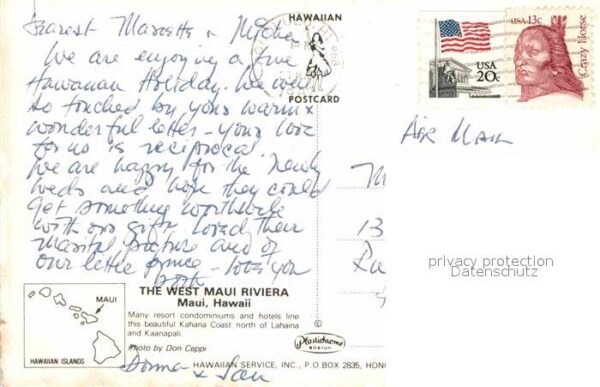 Dearest Marcette & Michel
We are enjoying a fine
Hawaiian Holiday. We were
so touched by your warm &
wonderful letter - your love
for us is reciprocal
We are happy for the newly
weds and hope they could
get something worthwhile
with our gift. Loved their
marital picture and of
our little prince - love you
both
Donna &
HAWAIIAN
POSTCARD
USA
20c
USA 13c
Crazy Horse
AIR MAIL
13
privacy protection
Datenschutz
THE WEST MAUI RIVIERA
Maui, Hawaii
Many resort condominiums and hotels line
this beautiful Kahana Coast north of Lahaina
and Kaanapali.
Photo by Don Ceppi
MAUI
HAWAIIAN ISLANDS
Plastichrome
BOSTON
HAWAIIAN SERVICE, INC., P.O. BOX 2835, HONO